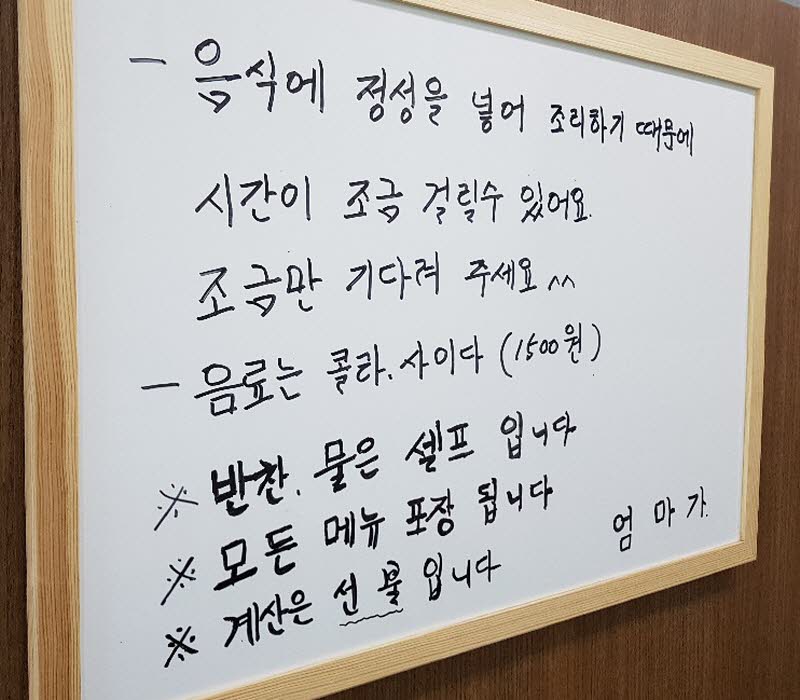 - 음식에 정성을 넣어 조리하기 때문에
시간이 조금 걸릴수 있어요.
조금만 기다려 주세요 ^^
- 음료는 콜라. 사이다 (1500원)
※ 반찬. 물은 셀프 입니다
※ 모든 메뉴 포장 됩니다
※ 계산은 선불 입니다
엄마가.